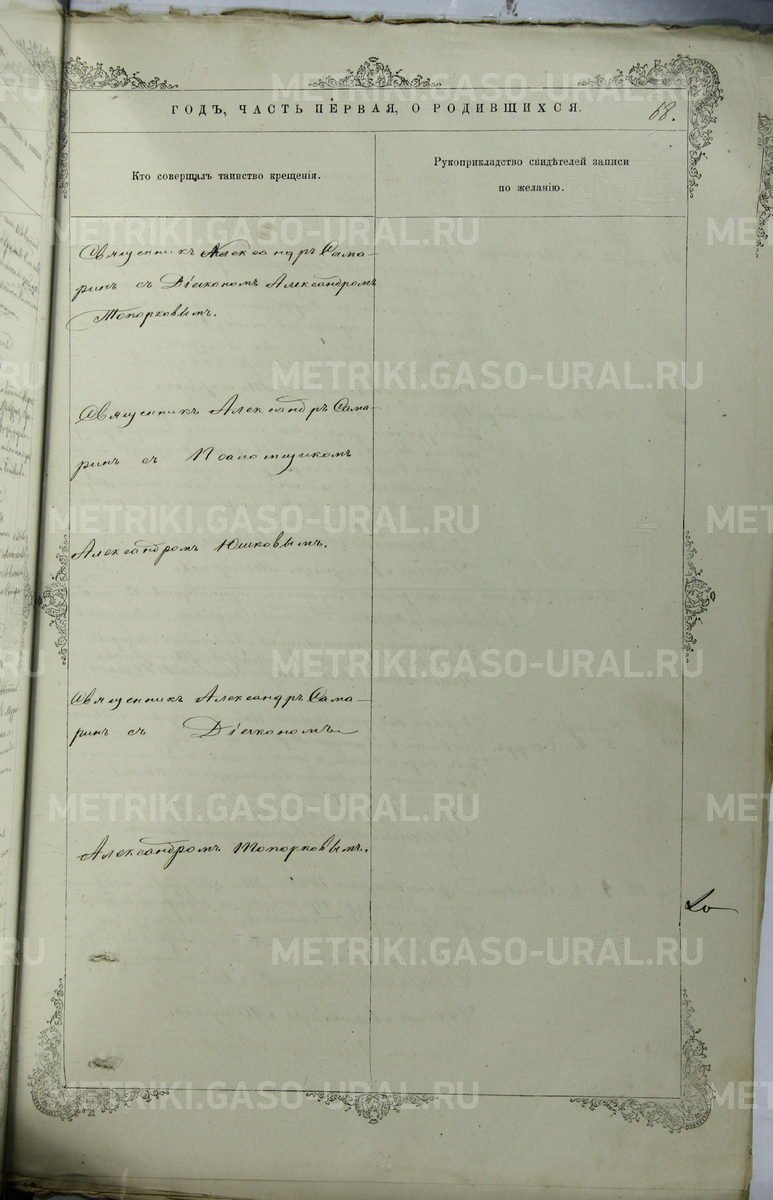 ГОДЪ, ЧАСТЬ ПЕРВАЯ, О РОДИВШИХСЯ.
68.
Кто совершалъ таинство крещенія.
Рукоприкладство свидѣтелей записи
по желанію.
Священникъ Александръ Сама-
ринъ съ Діакономъ Александромъ
Топорковымъ.
Священникъ Александръ Сама-
ринъ съ Псаломщикомъ
Александромъ Юшковымъ.
Священникъ Александръ Сама-
ринъ съ Діакономъ
Александромъ Топорковымъ.
METRIKI.GASO-URAL.RU